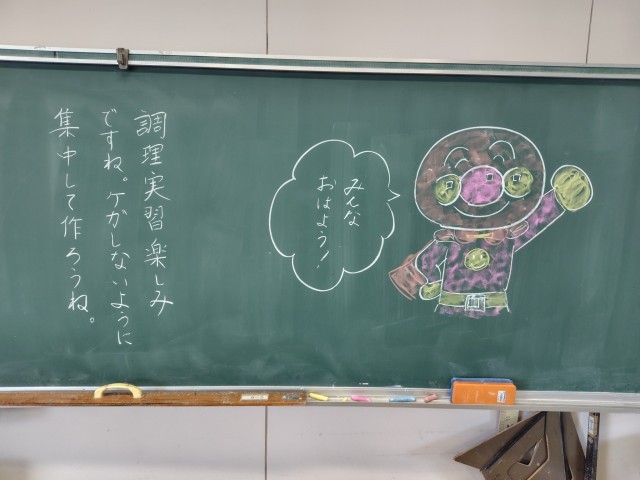 調理実習楽しみ
ですね。ケガしないように
集中して作ろうね。
みんな
おはよう!